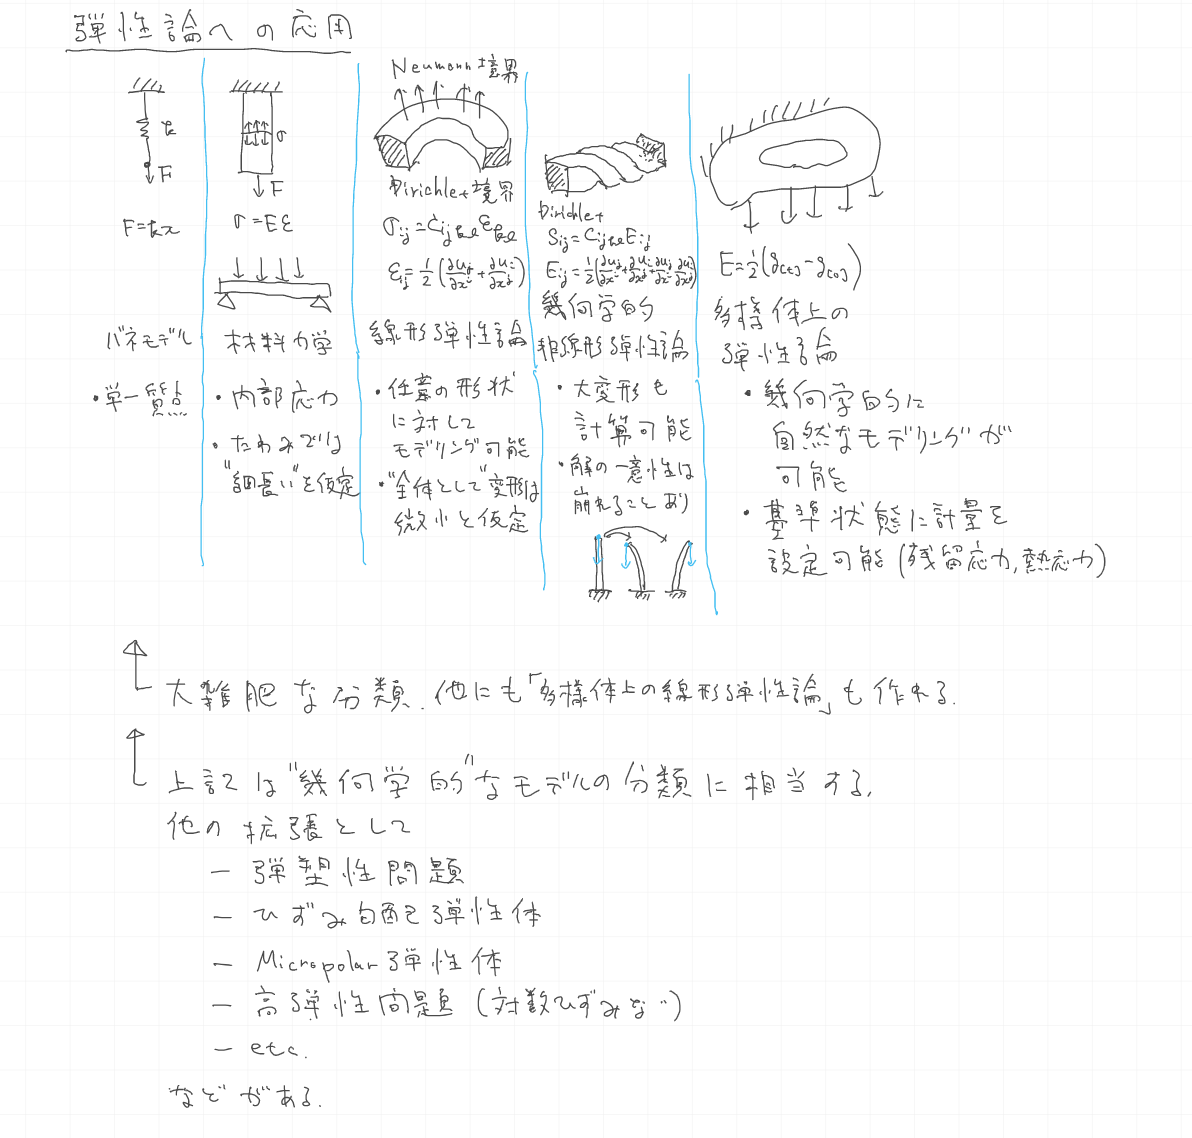 弾性論への応用
k
F
F=kx
バネモデル
・単一質点
σ
F
σ=Eε
材料力学
・内部応力
・たわみでは
"細長い"を仮定
Neumann境界
Dirichlet境界
σij=Cijkl εkl
εij=1/2(∂uj/∂x^i+∂ui/∂x^j)
線形弾性論
・任意の形状
に対して
モデリング可能
・"全体として"変形は
微小と仮定
Dirichlet
Sij=CijklEij
Eij=1/2(∂uj/∂x^i+∂ui/∂x^j+∂u/∂x^i ∂u/∂x^j)
幾何学的
非線形弾性論
・大変形も
計算可能
・解の一意性は
崩れることあり
E=1/2(g[t]-g[0])
多様体上の
弾性論
・幾何学的に
自然なモデリングが
可能
・基準状態に計量を
設定可能(残留応力,熱応力)
大雑把な分類.他にも「多様体上の線形弾性論」も作れる.
上記は"幾何学的"なモデルの分類に相当する.
他の拡張として
- 弾塑性問題
- ひずみ勾配弾性体
- Micropolar弾性体
- 高弾性問題(対数ひずみなど)
- etc.
などがある.